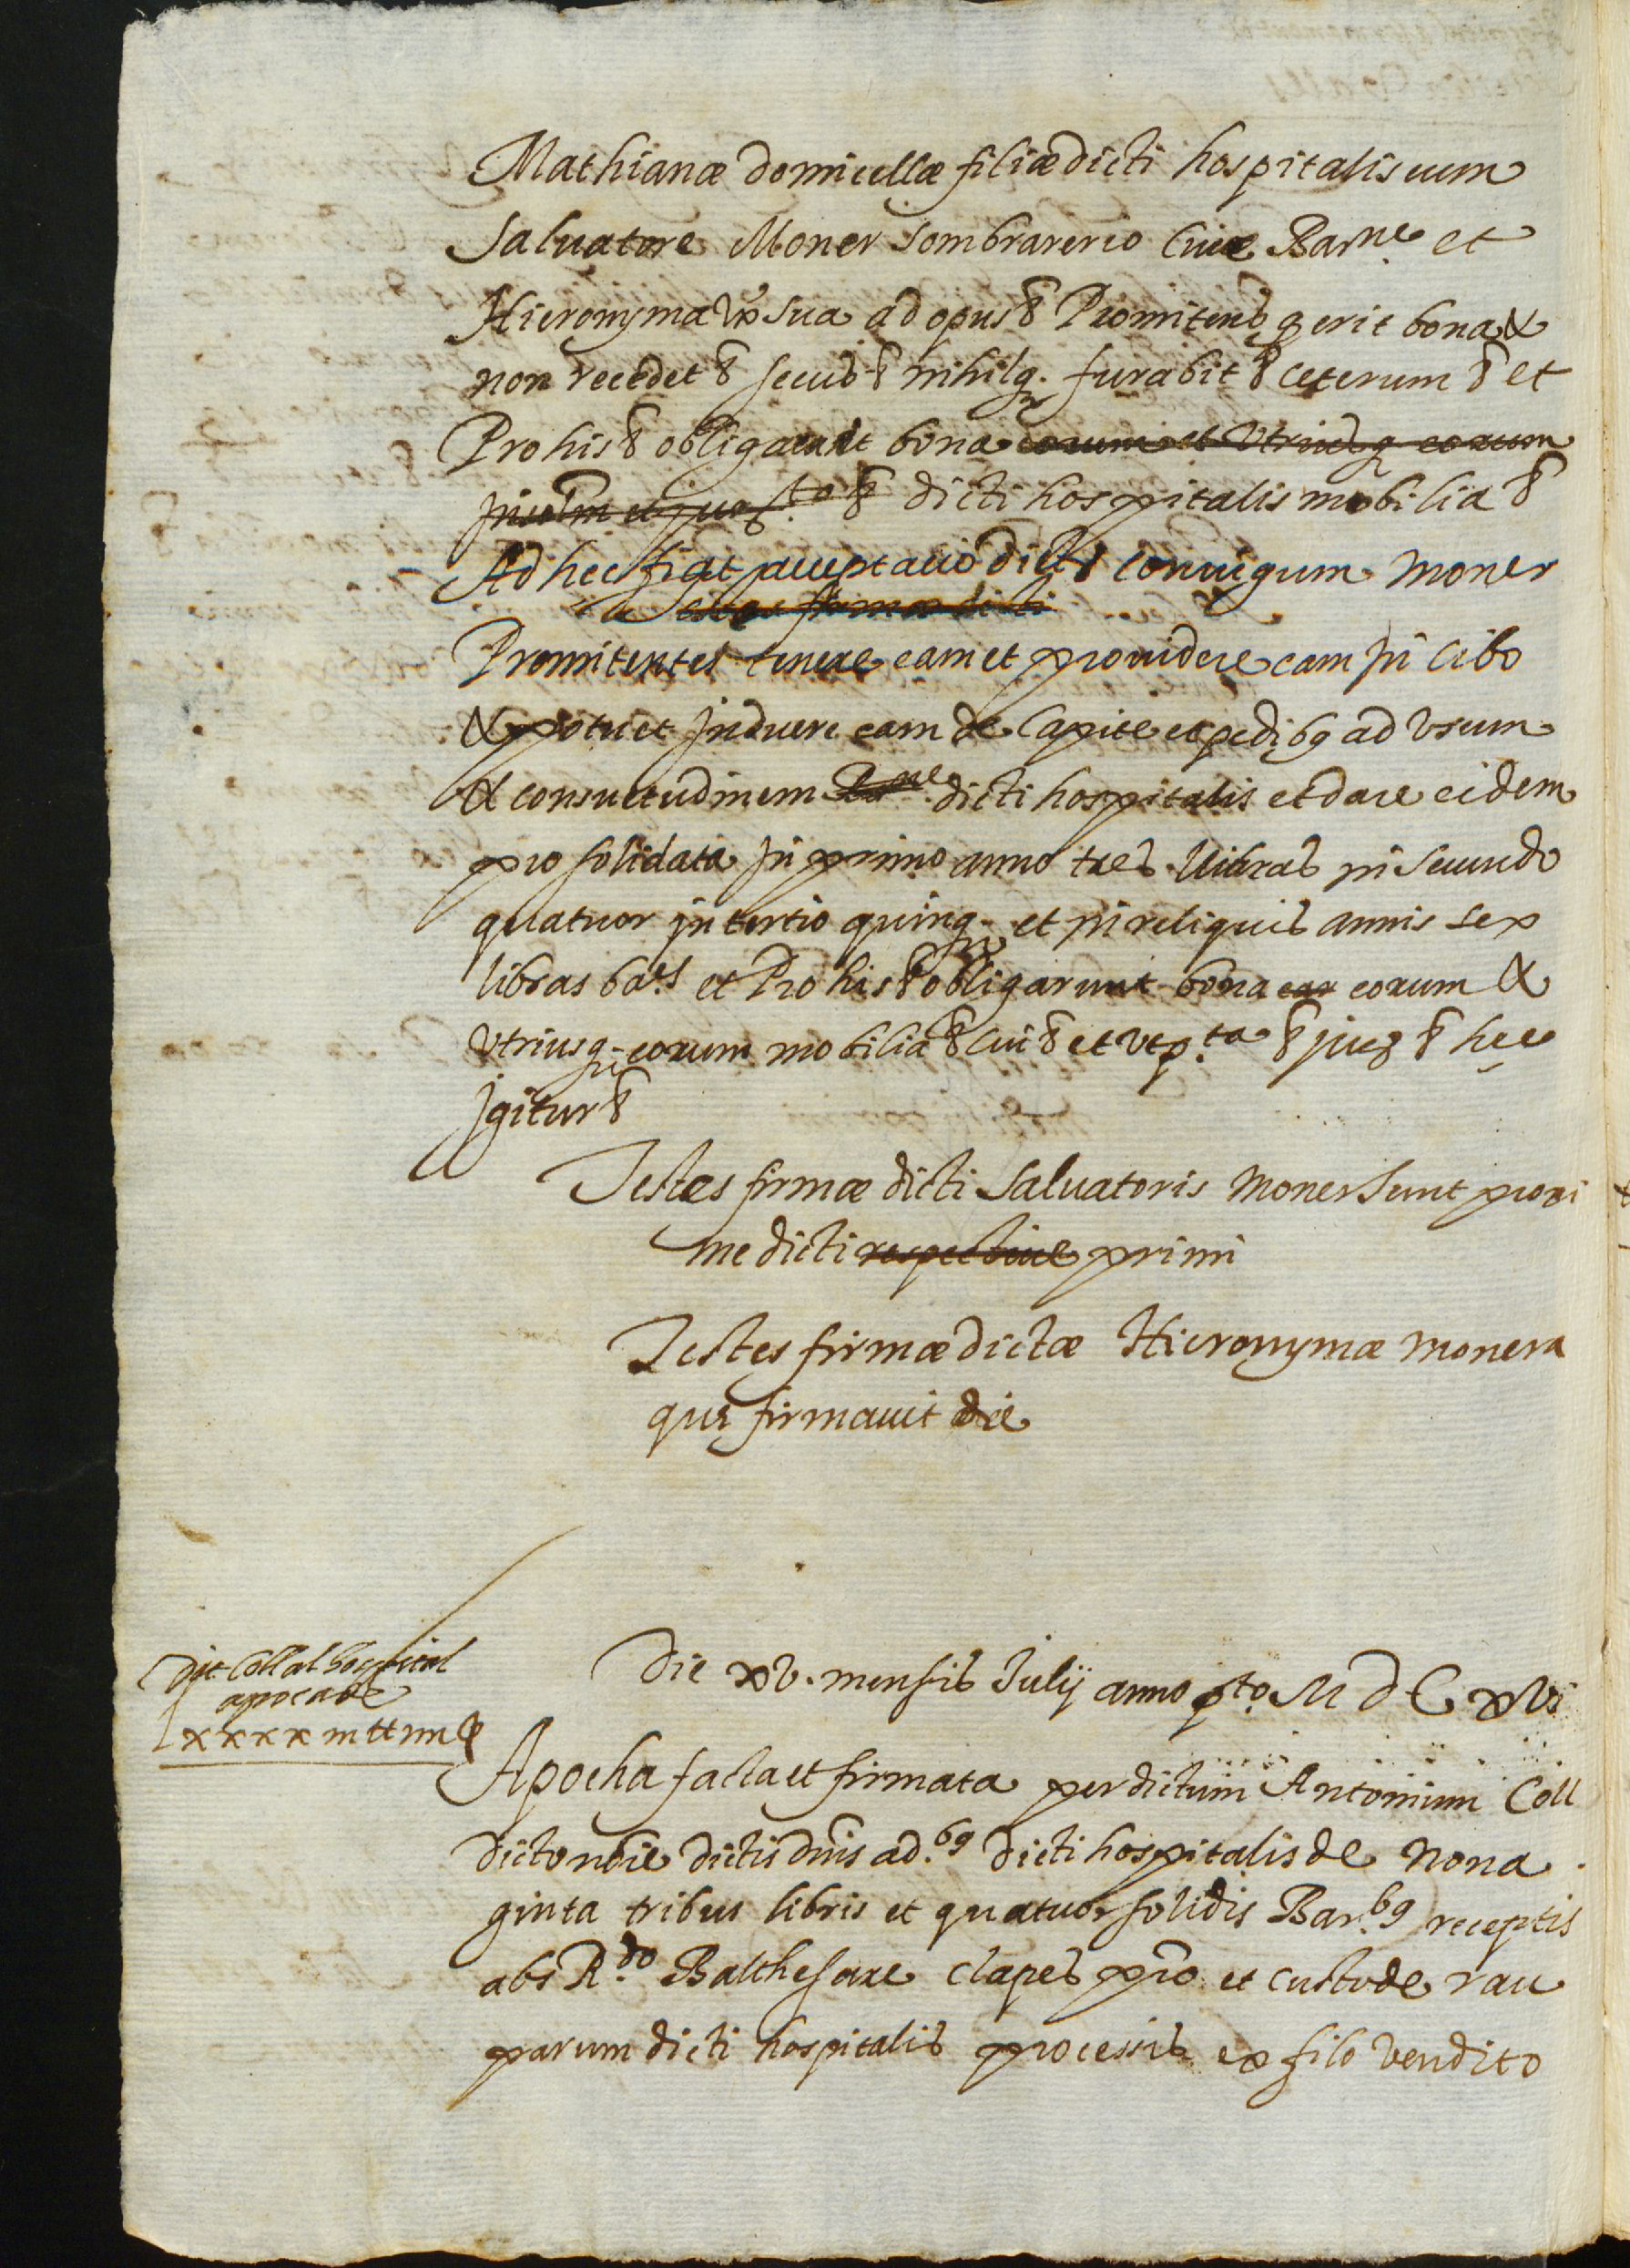 Mathianæ domicellæ filiæ dicti hospitalis cum
Saluatore Moner sombrarerio Ciue Barne. et
Hieronyma vx sua ad opus & Promitens q erit bona &
non recedet & secus & nihilq. furabit & ceterum & et
Pro his & obligarunt bona eorum et vtriusq eorum
insolm & dicti hospitalis mobilia &
Ad hec fiat acceptatio dicti coniugum moner
Testes firmæ dicti
Promitentes tenere eam et prouidere eam in cibo
& potu et induere eam de capite et pedibq ad vsum
& consuetudinem Barne. dicti hospitalis et dare eidem
pro solidata in primo anno tres libras in secundo
quatuor in tertio quinq. et in reliquis annis sex
libras bars et Pro his & obligarunt bona ear eorum &
vtriusq. eorum mobilia & cui & et vt pta. & jur & hec
igitur &
Testes firmæ dicti Saluatoris moner sunt proxi
me dicti respectiue primi
Testes firmæ dictæ Hieronymæ monera
quę firmauit die
Dit Coll al hospital
apoca de
xxxx
Die xv. mensis Julij anno pto. M d C xvi
Apocha facta et firmata per dictum Antonium Coll
dicto noie dictis dnis ad.bq dicti hospitalis de nona
ginta tribus libris et quatuor solidis Bar.bq receptis
abs R.do Balthesare clapes pro et custode rau
parum dicti hospitalis processis ex filo vendito